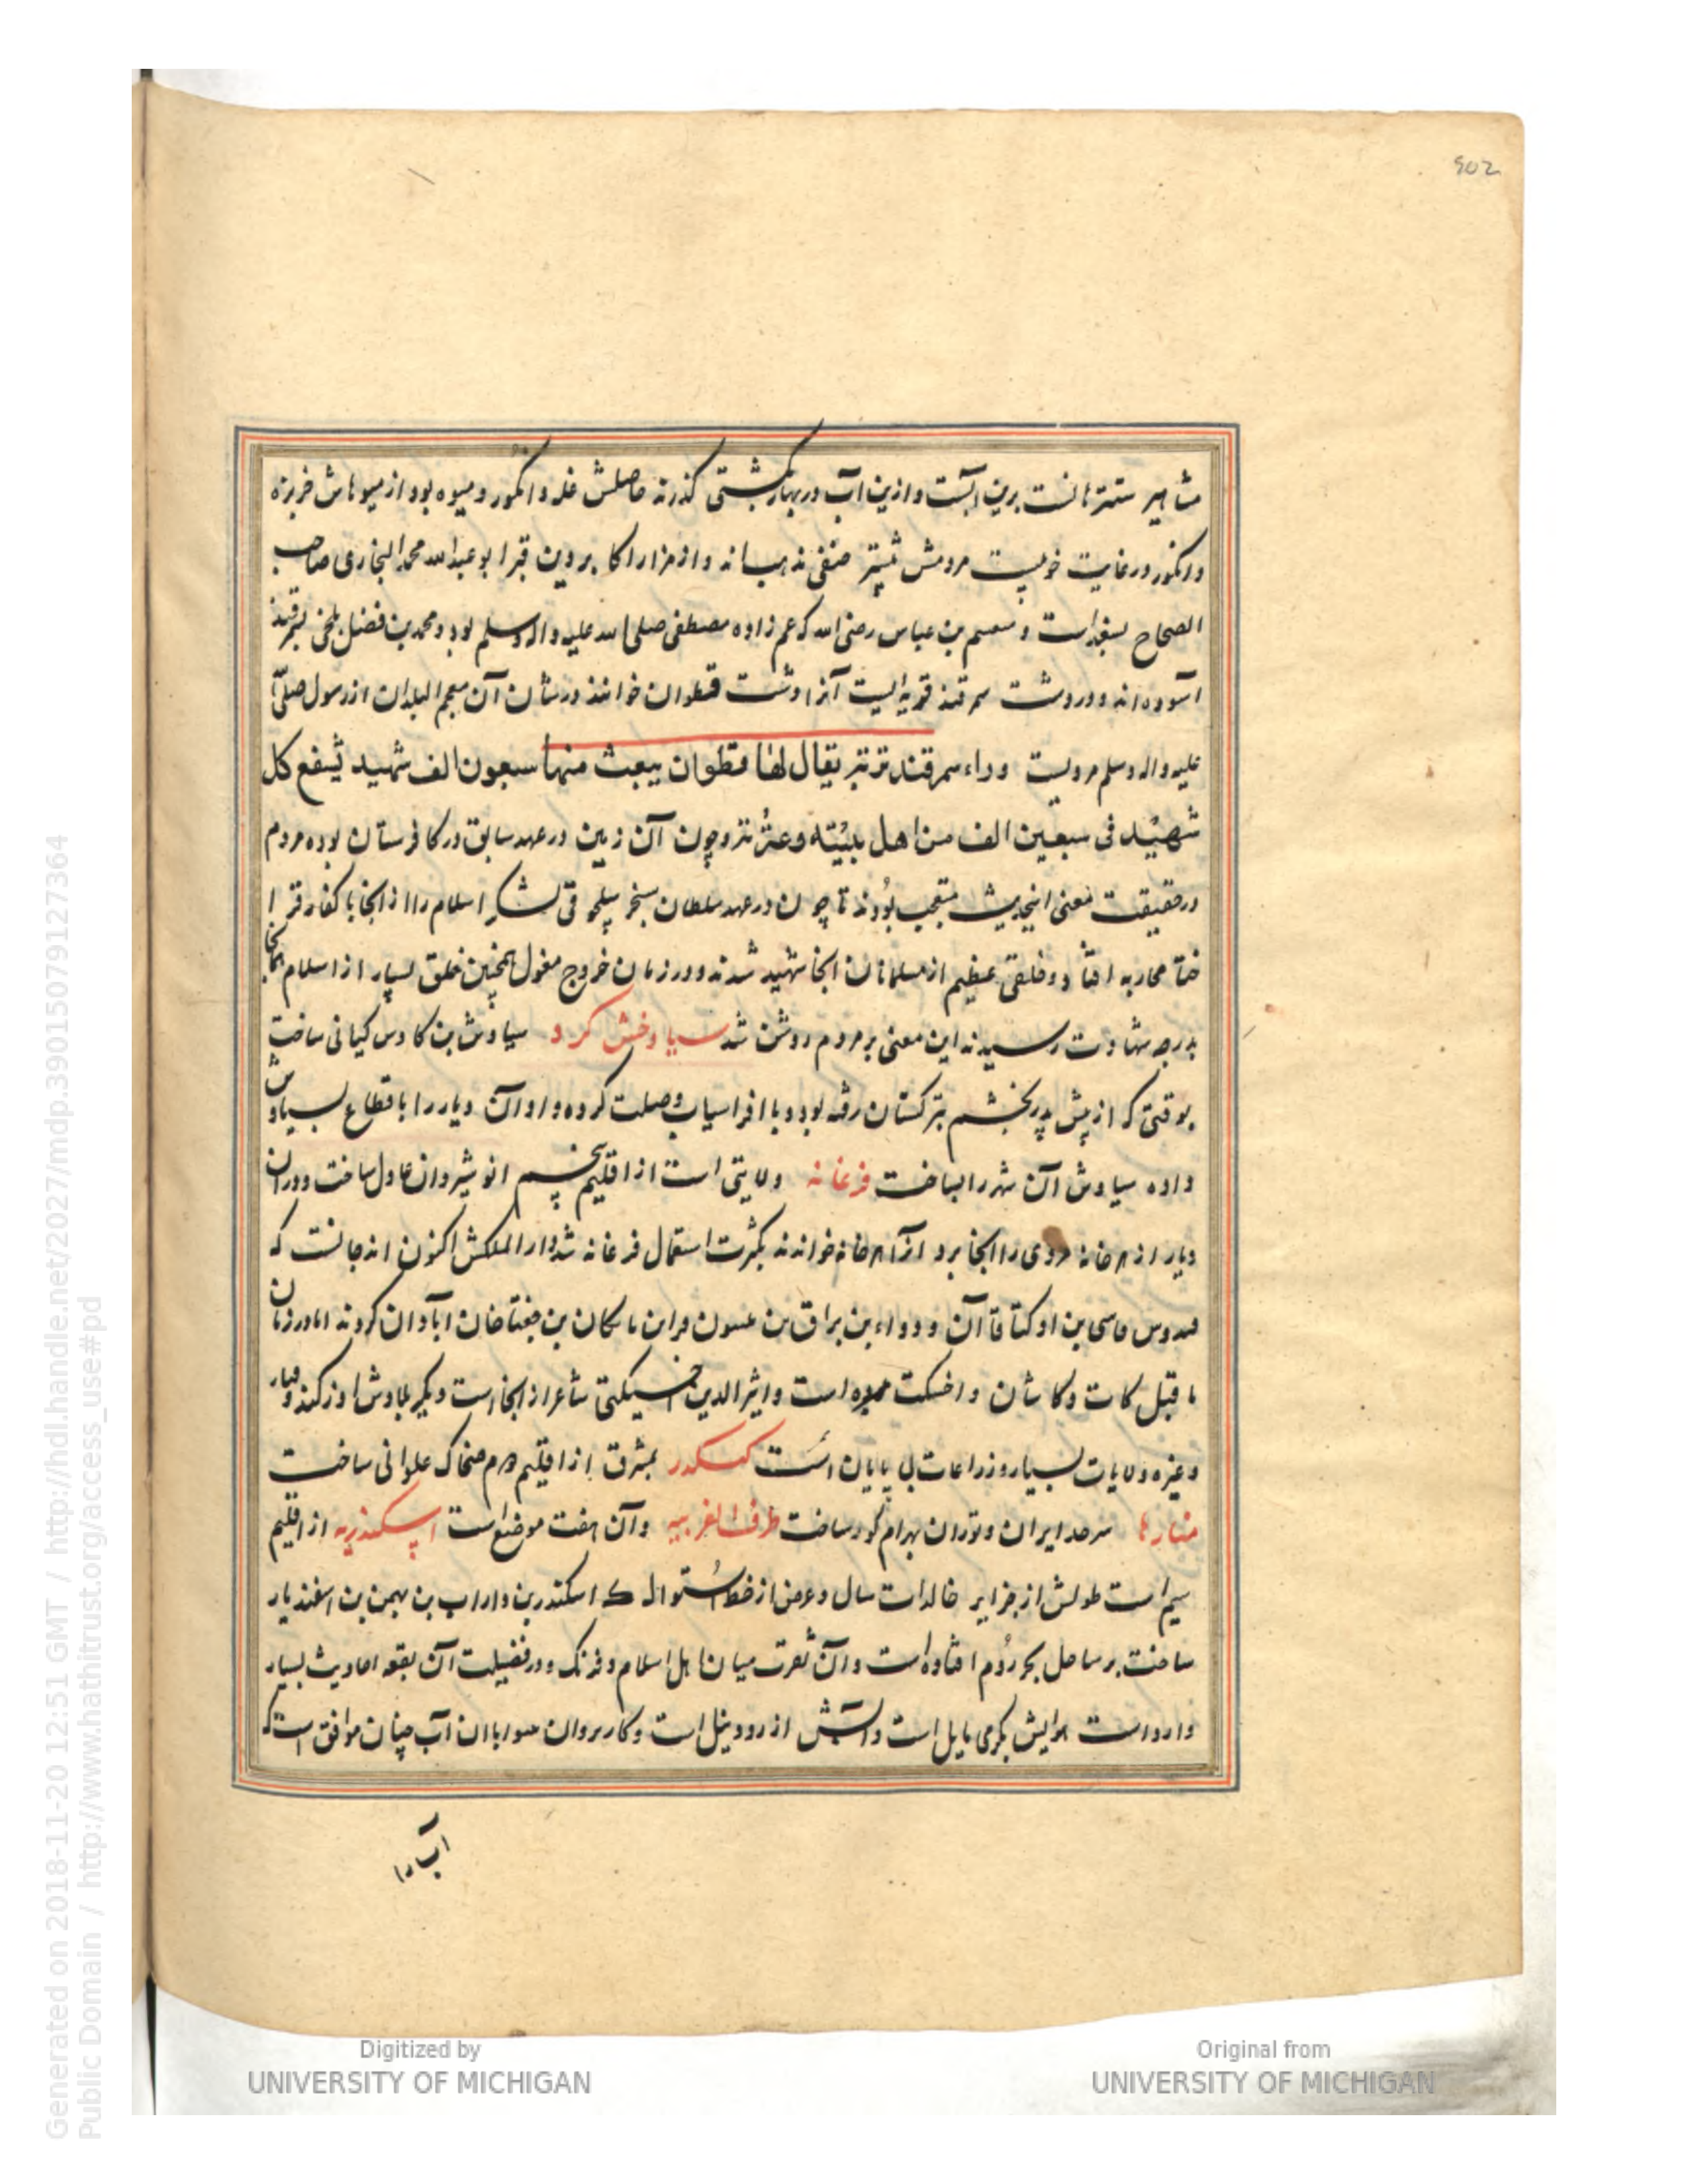 902
مشاهیر ستنزهانست برین آبست و ازین آب در بهار بکشتی گذرند حاصلش غله و انکور و میوه بود از میوهاش خربزه
و انکور در غایت خوبیست مردمش بیشتر حنفی مذهب‌اند و از مزار اکابر دین قبر ابو عبدالله محمد البخاری صاحب
الصحاح بسغد است و بن عباس رضی الله که عم زاده مصطفی صلی الله علیه و اله وسلم بود و محمد بن فضل بلخی بسمرقند
آسوده‌اند و در دشت سمرقند قریه‌ایست آنرا دشت قطوان خوانند در شان آن معجم البلدان از رسول صلی
علیه و اله وسلم مرویست وراء سمرقند تربة یقال لها قطوان یبعث منها سبعون الف شهید یشفع کل
شهید فی سبعین الف من اهل بیته و عترته و چون آن زمین در عهد سابق در کافرستان بوده مردم
در حقیقت معنی این حدیث متعجب بودند تا چون در عهد سلطان سنجر سلجوقی لشکر اسلام را از انجا با کفار قرا
ختا محاربه افتاد و خلقی عظیم از مسلمانان انجا شهید شدند و در زمان خروج مغول همچنین خلق بسیار از اسلام انجا
بدرجه شهادت رسیدند این معنی بر مردم روشن شد سیاوخش کرد سیاوش بن کاوس کیانی ساخت
بوقتی که از پیش پدر بخشم بترکستان رفته بود و با افراسیاب وصلت کرده و او آن دیار را باقطاع بسیاوش
داده سیاوش آن شهر را بساخت فرغانه ولایتی است از اقلیم پنجم انوشیروان عادل ساخت و در آن
دیار از هر خانه مردی را انجا برد آنرا هر خانه خواندند بکثرت استعمال فرغانه شد دار الملکش اکنون اندجانست که
قیدو بن قاسی بن اوکتا قاآن و دواء بن براق بن بن ماتکان بن جغتا خان آبادان کردند اما در زمان
ما قبل کات و کاشان و اخسکت بوده است و اثیر الدین اخسیکتی شاعر از انجا است و دیکر بلادش اوزکند و
و غیره ولایات بسیار و زراعات بی پایان است کنکدر بمشرق از اقلیم دوم ضحاک علوانی ساخت
منارها سرحد ایران و توران بهرام کور ساخت طرف الغربیه و آن هفت موضع است اسکندریه از اقلیم
سیم است طولش از جزایر خالدات سال و عرض از خط استوا لـ ک اسکندر بن داراب بن بهمن بن اسفندیار
ساخت بر ساحل بحر روم افتاده است و آن ثغرت میان اهل اسلام و فرنک و در فضیلت آن بقعه احادیث بسیار
وارد است هوایش بگرمی مایل است و آبش از رود نیل است و کاربردان هوا با آن آب چنان موافق است که
آب را
Digitized by
UNIVERSITY OF MICHIGAN
Original from
UNIVERSITY OF MICHIGAN
Generated on 2018-11-20 12:51 GMT / http://hdl.handle.net/2027/mdp.39015079127364
Public Domain / http://www.hathitrust.org/access_use#pd